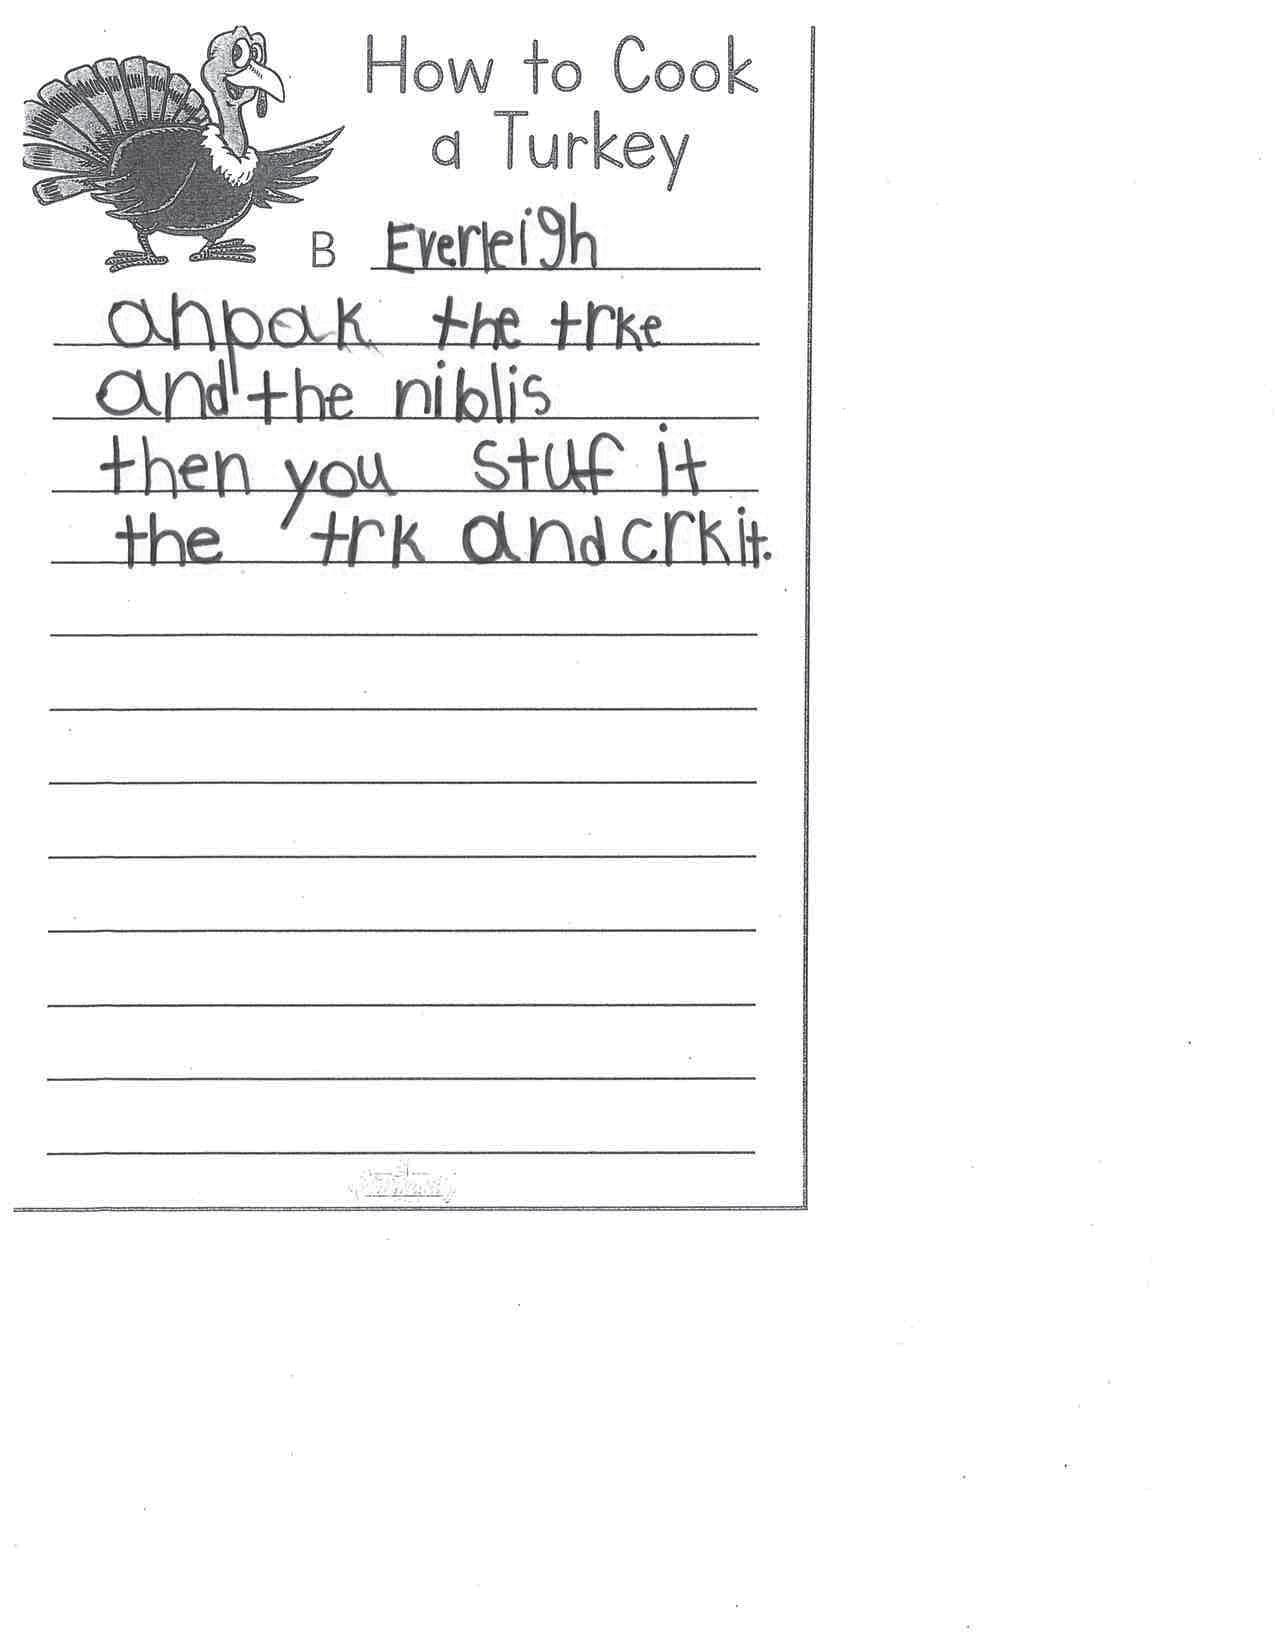 How to Cook
a Turkey
B Everleigh
anpak the trke
and the niblis
then you stuf it
the trk and crk it.